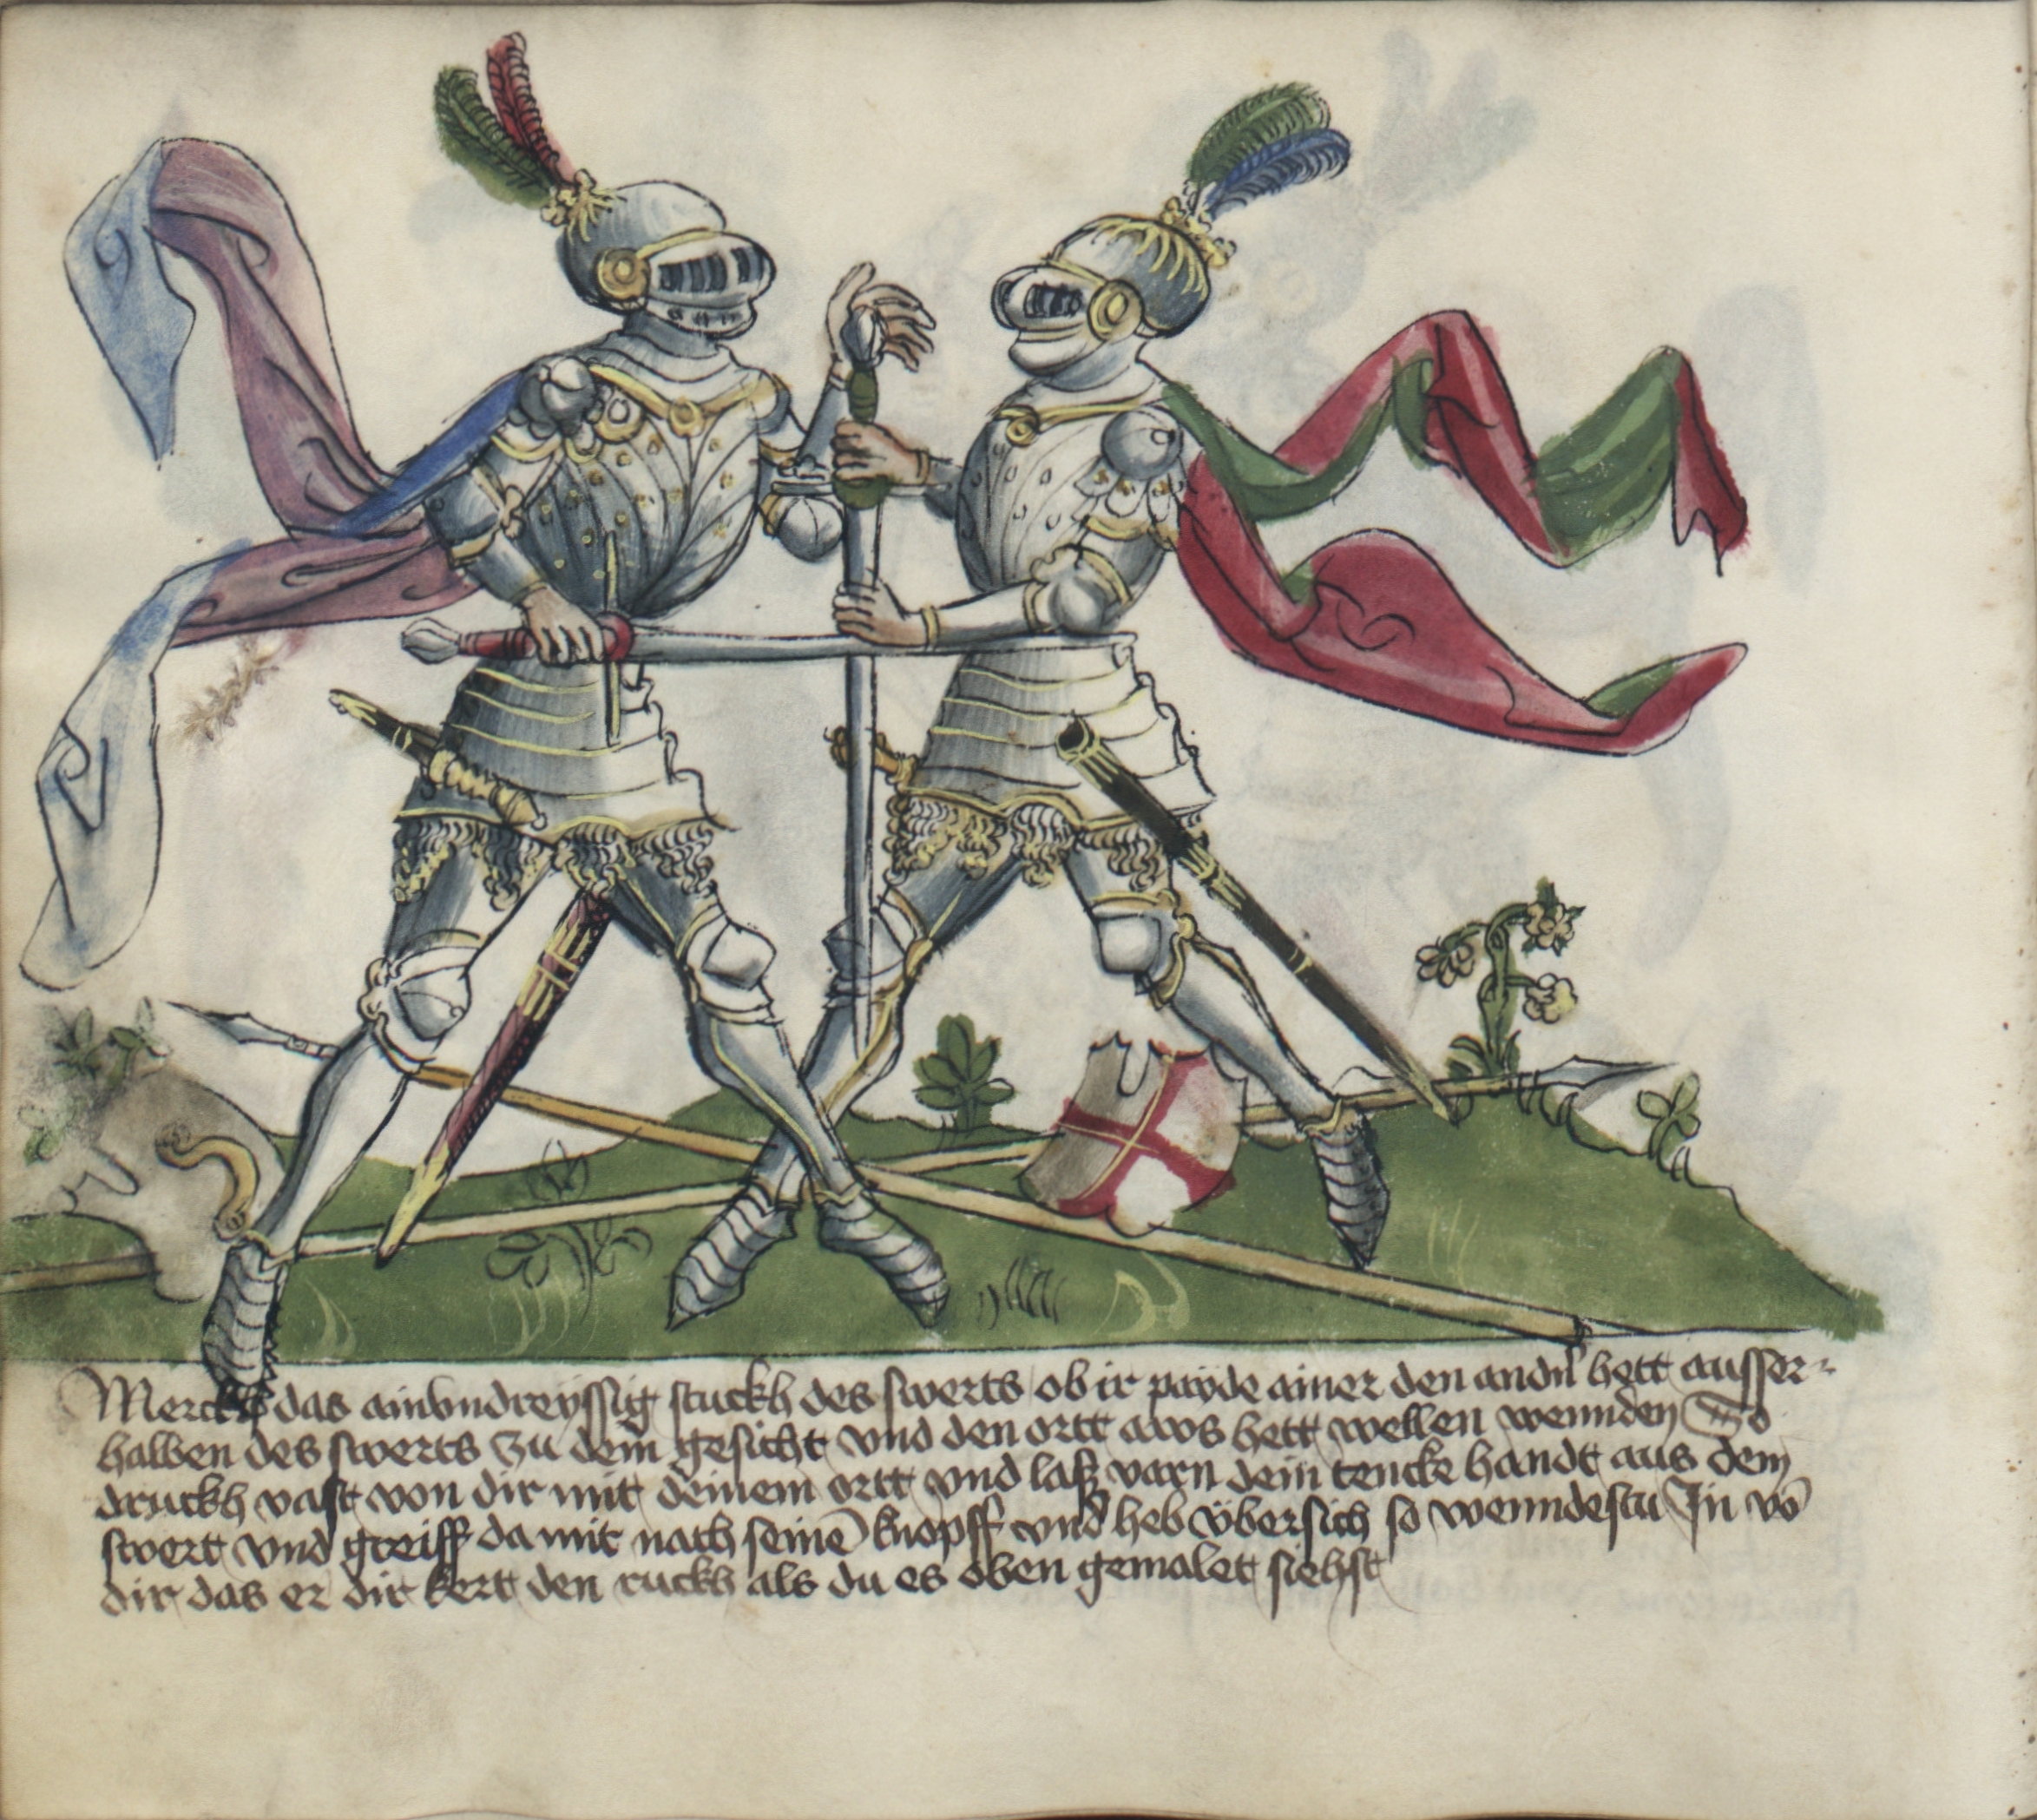 Merckh das ainvndreyssig stuckh des swerts ob ir payde ainer den andn̄ hett ausser-
halben des swerts zu dem gesicht vnd den ortt aws hett wellen wennden So
druckh vast von dir mit deinem ortt vnd lass varn dein tencke handt aus dem
swert vnd greiff damit nach seinē knopff vnd heb vbersich so wenndestu In vō
dir das er dir kert den ruckh als du es oben gemalet siehst